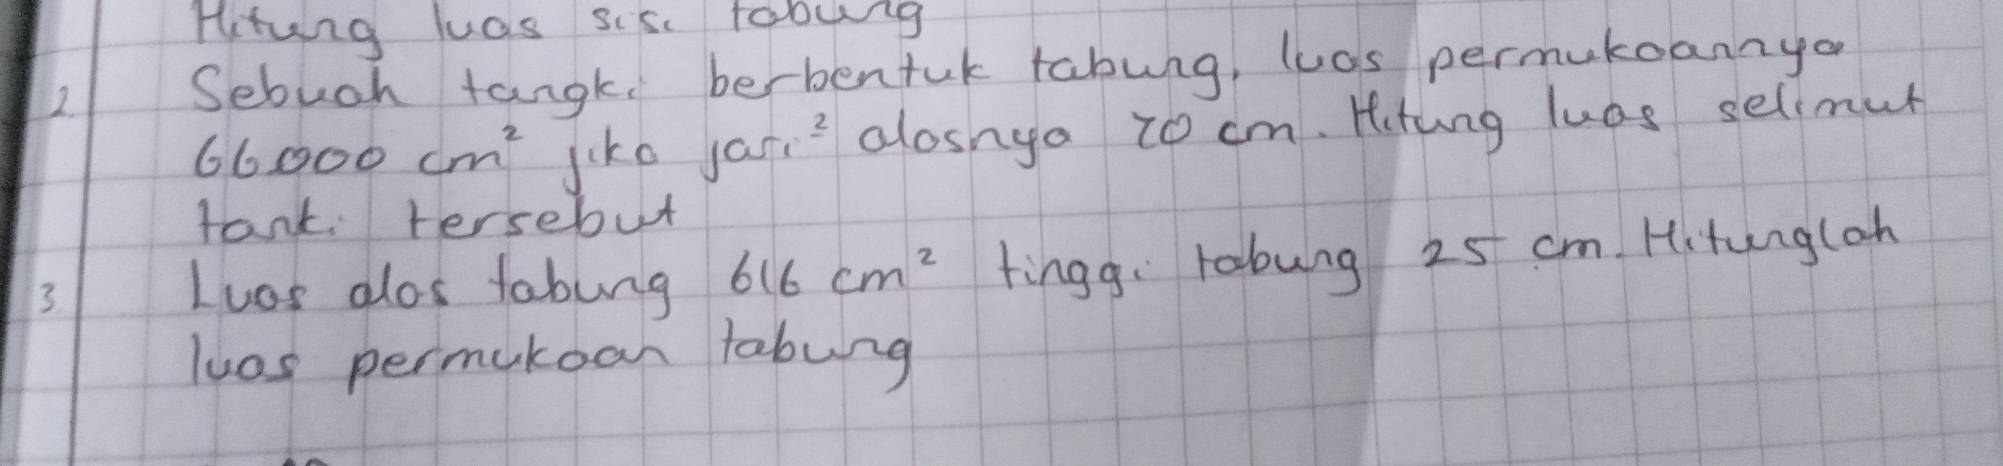 Hitung luas sisi tabung
2. Sebuah tangki berbentuk tabung, luas permukaannya
66000 cm² jika jari² alasnya 70 cm. Hitung luas selimut
tanki tersebut
3. Luas alas tabung 616 cm² tinggi tabung 25 cm. Hitunglah
luas permukaan tabung